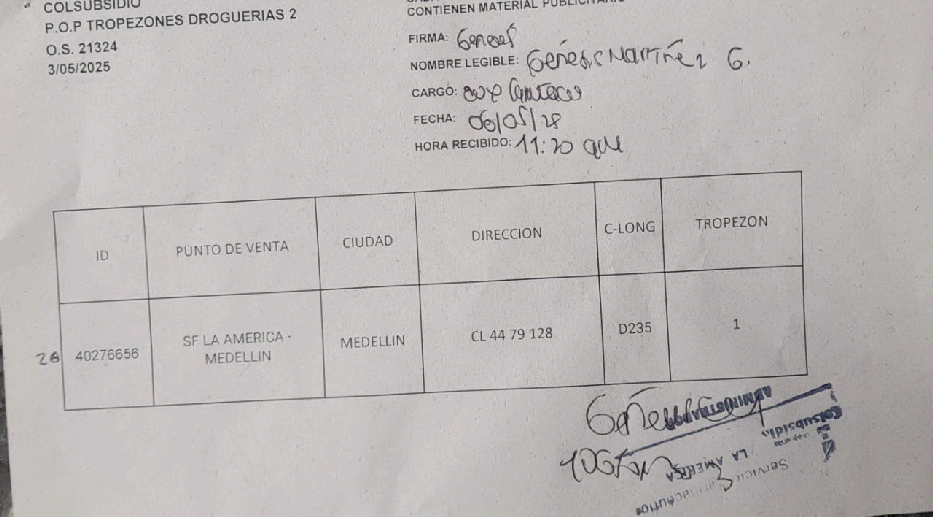 COLSUBSIDIO
P.O.P TROPEZONES DROGUERIAS 2
O.S. 21324
3/05/2025
CONTIENEN MATERIAL
FIRMA:
NOMBRE LEGIBLE: Geñesis Martiñez G.
CARGO:
FECHA: 06/05/28
HORA RECIBIDO: 11:20 am
ID PUNTO DE VENTA CIUDAD DIRECCION C-LONG TROPEZON
26 40276656 SF LA AMERICA - MEDELLIN MEDELLIN CL 44 79 128 D235 1
ADMINISTRA
Colsubsidio
LA AMERICA
SERVICIO